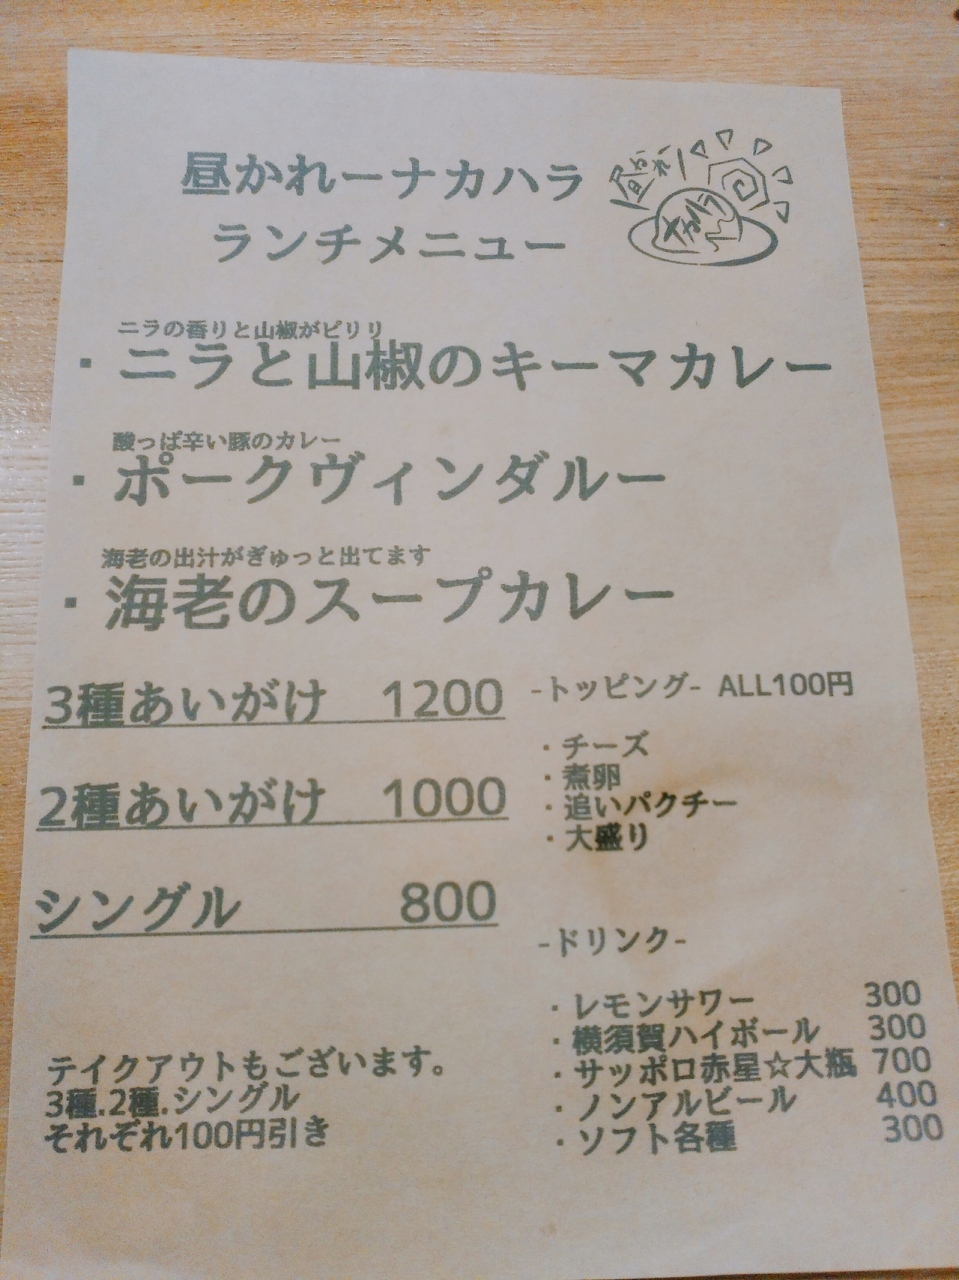 昼かれーナカハラ
昼かれー
ナカハラ
ランチメニュー
ニラの香りと山椒がピリリ
・ニラと山椒のキーマカレー
酸っぱ辛い豚のカレー
・ポークヴィンダルー
海老の出汁がぎゅっと出てます
・海老のスープカレー
3種あいがけ 1200
2種あいがけ 1000
シングル 800
-トッピング- ALL100円
・チーズ
・煮卵
・追いパクチー
・大盛り
-ドリンク-
・レモンサワー 300
・横須賀ハイボール 300
・サッポロ赤星☆大瓶 700
・ノンアルビール 400
・ソフト各種 300
テイクアウトもございます。
3種.2種.シングル
それぞれ100円引き